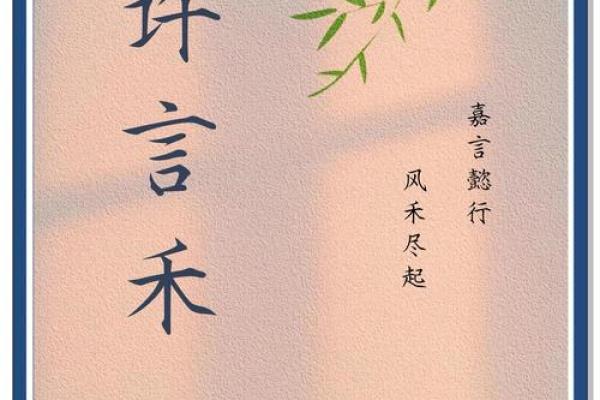 许言禾
嘉言懿行
风禾尽起